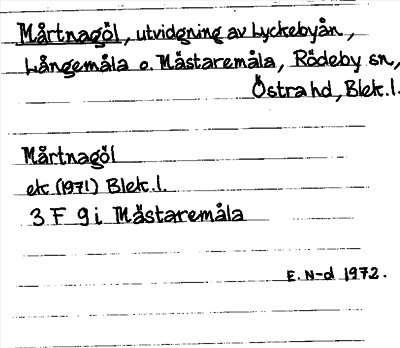 Mårtnagöl, utvidgning av Lyckebyån,
Långemåla o. Mästaremåla, Rödeby sn,
Östra hd, Blek. l.
Mårtnagöl
ek (1971) Blek. l.
3 F 9 i Mästaremåla
E. N-d 1972.